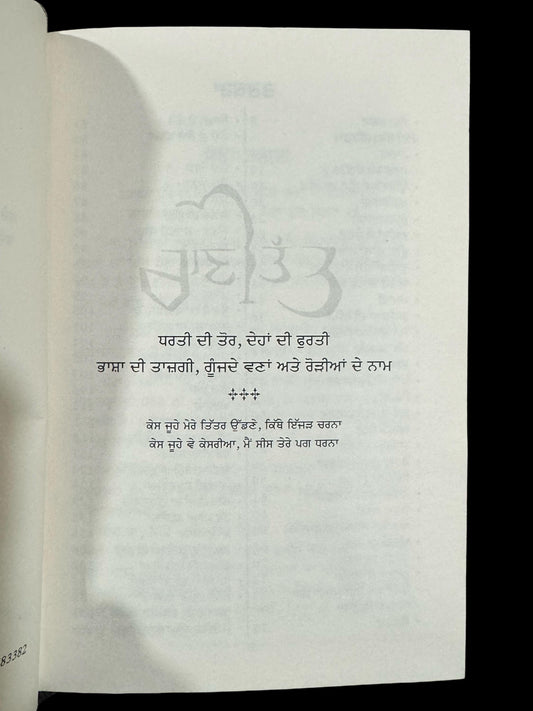 ਰਾਣੀਤੱਤ
ਧਰਤੀ ਦੀ ਤੋਰ, ਦੇਹਾਂ ਦੀ ਫੁਰਤੀ
ਭਾਸ਼ਾ ਦੀ ਤਾਜ਼ਗੀ, ਗੂੰਜਦੇ ਵਣਾਂ ਅਤੇ ਰੋੜੀਆਂ ਦੇ ਨਾਮ
ਕੇਸ ਜੂਹੇ ਮੇਰੇ ਤਿੱਤਰ ਉੱਡਣੇ, ਕਿੱਥੇ ਇੱਜੜ ਚਰਨਾ
ਕੇਸ ਜੂਹੇ ਵੇ ਕੇਸਰੀਆ, ਮੈਂ ਸੀਸ ਤੇਰੇ ਪਗ ਧਰਨਾ
83382